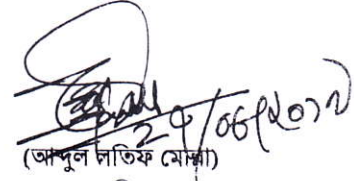 ২৭/০৬/২০১৭
(আব্দুল লতিফ মোল্লা)